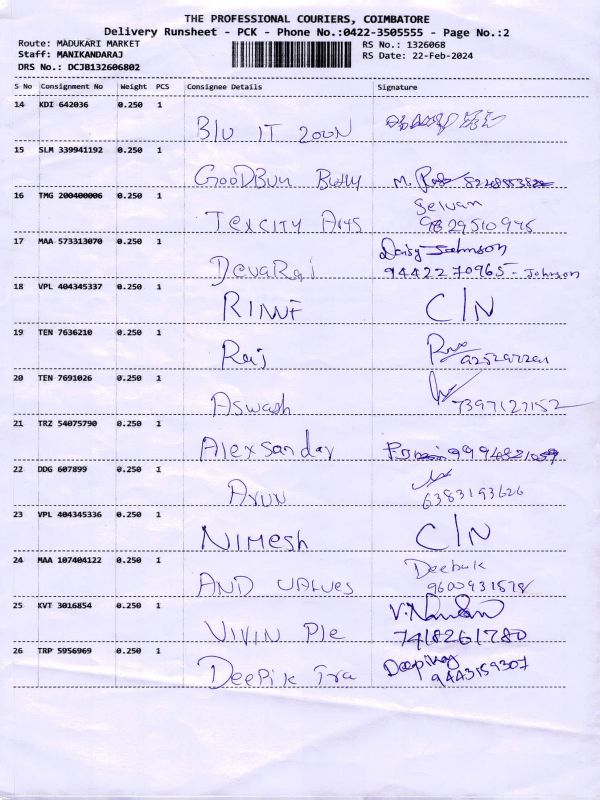 THE PROFESSIONAL COURIERS, COIMBATORE
Delivery Runsheet - PCK - Phone No.:0422-3505555 - Page No.:2
Route: MADUKARI MARKET
Staff: MANIKANDARAJ
DRS No.: DCJB132606802
RS No.: 1326068
RS Date: 22-Feb-2024
S No Consignment No Weight PCS Consignee Details Signature
14 KDI 642036 0.250 1
B/U IT ZOON
15 SLM 339941192 0.250 1
GOODBUY
M.
16 TMG 200400006 0.250 1
TEXCITY
Selvan
9829510945
17 MAA 573313070 0.250 1
DevaRaj
Daisy Johnson
9442270965 - Johnson
18 VPL 404345337 0.250 1
C/N
19 TEN 7636210 0.250 1
Raj
20 TEN 7691026 0.250 1
Aswash
7397127152
21 TRZ 54075790 0.250 1
Alexsandar
22 DDG 607899 0.250 1
Arun
6383193626
23 VPL 404345336 0.250 1
NIMesh
C/N
24 MAA 107404122 0.250 1
AND VALUES
Deebuk
9600931878
25 KVT 3016854 0.250 1
VIVIN Ple
7418261780
26 TRP 5956969 0.250 1
DeePik Tra
9443159307